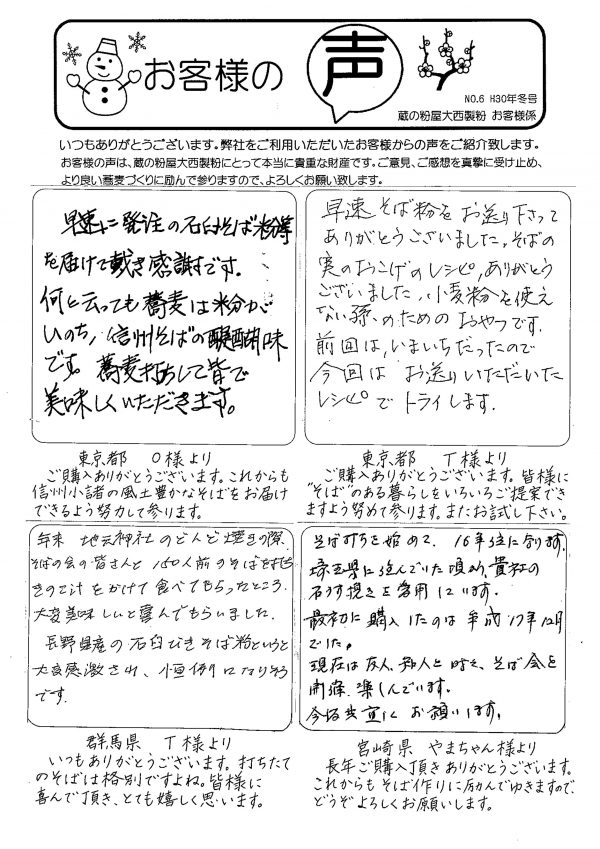 お客様の声
NO.6 H30年冬号
蔵の粉屋大西製粉 お客様係
いつもありがとうございます。弊社をご利用いただいたお客様からの声をご紹介致します。
お客様の声は、蔵の粉屋大西製粉にとって本当に貴重な財産です。ご意見、ご感想を真摯に受け止め、
より良い蕎麦づくりに励んで参りますので、よろしくお願い致します。
早速に発注の石臼そば粉等
を届けて戴き感謝です。
何と云っても蕎麦は粉が
いのち!信州そばの醍醐味
です。蕎麦打ちして皆で
美味しくいただきます。
東京都 O様より
ご購入ありがとうございます。これからも
信州小諸の風土豊かなそばをお届け
できるよう努力して参ります。
早速そば粉をお送り下さって
ありがとうございました。そばの
実のおこげのレシピ、ありがとう
ございました。小麦粉を使え
ない孫、のためのおやつです。
前回は、いまいちだったので
今回は お送りいただいた
レシピで トライします。
東京都 T様より
ご購入ありがとうございます。皆様に
"そば"のある暮らしをいろいろご提案でき
ますよう努めて参ります。またお試し下さい。
年末 地元神社のどんど焼きの際
そばの会の皆さんと 150人前のそばを打ち
きのこ汁をかけて食べてもらったところ、
大変美味しいと喜んでもらいました。
長野県産の石臼びきそば粉というと
大変感激され、恒例になりそう
です。
群馬県 T様より
いつもありがとうございます。打ちたて
のそばは格別ですよね。皆様に
喜んで頂き、とても嬉しく思います。
そば打ちを始めて、16年位になります。
埼玉県に住んでいた頃から、貴社の
石うす挽きを愛用しています。
最初に購入したのは平成17年12月
でした。
現在は友人、知人と時々、そば会を
開催 楽しんでいます。
今後共宜しく お願います。
宮崎県 やまちゃん様より
長年ご購入頂きありがとうございます。
これからもそば作りに励んでゆきますので、
どうぞよろしくお願いします。